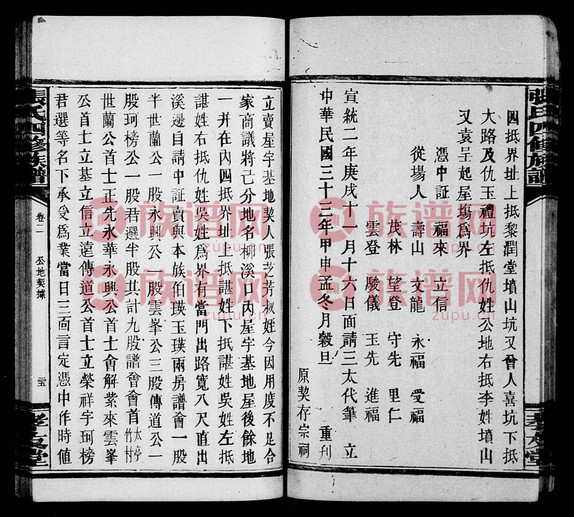 張氏四修族譜
四抵界址上抵黎潤堂墳山坑又晉人喜坑下抵
大路及仇玉禮坑左抵仇姓公地右抵李姓墳山
又袁呈起屋塲為界
憑中証人 福來 立信
從塲人 壽山 文龍 永福 受福
茂林 望登 守先 里仁
雲登 駿儀 玉先 進福
宣統二年庚戌十一月十六日面請三太代筆 立
中華民國三十三年甲申孟冬月穀旦 重刊
原契存宗祠
孝友堂
立賣屋宇基地契人張芝芳叔姪今因用度不足合
家商議將己分地名柳溪口內屋宇基地屋後餘地
一并在內四抵界址上抵諶姓下抵諶姓吳姓左抵
諶姓右抵仇姓吳姓為界有當門出路寬八尺直出
溪邊自請中証賣與本族伯璞玉璞兩房譜會一股
半世蘭公一股永興公一股雲峯公三股傳道公一
股珂榜公一股君選半股其計九股譜會會首太亭竹村
世蘭公首士正先永華永興公首士會解紫來雲峯
公首士立基立信立遠傳道公首士立榮祥宇珂榜
君選等名下承受為業當日三面言定憑中作時値
張氏四修族譜
卷二
公地契據
孝友堂
族谱网
zupu.cn
族谱网
zupu.cn
族谱网
zupu.cn
族谱网
zupu.cn